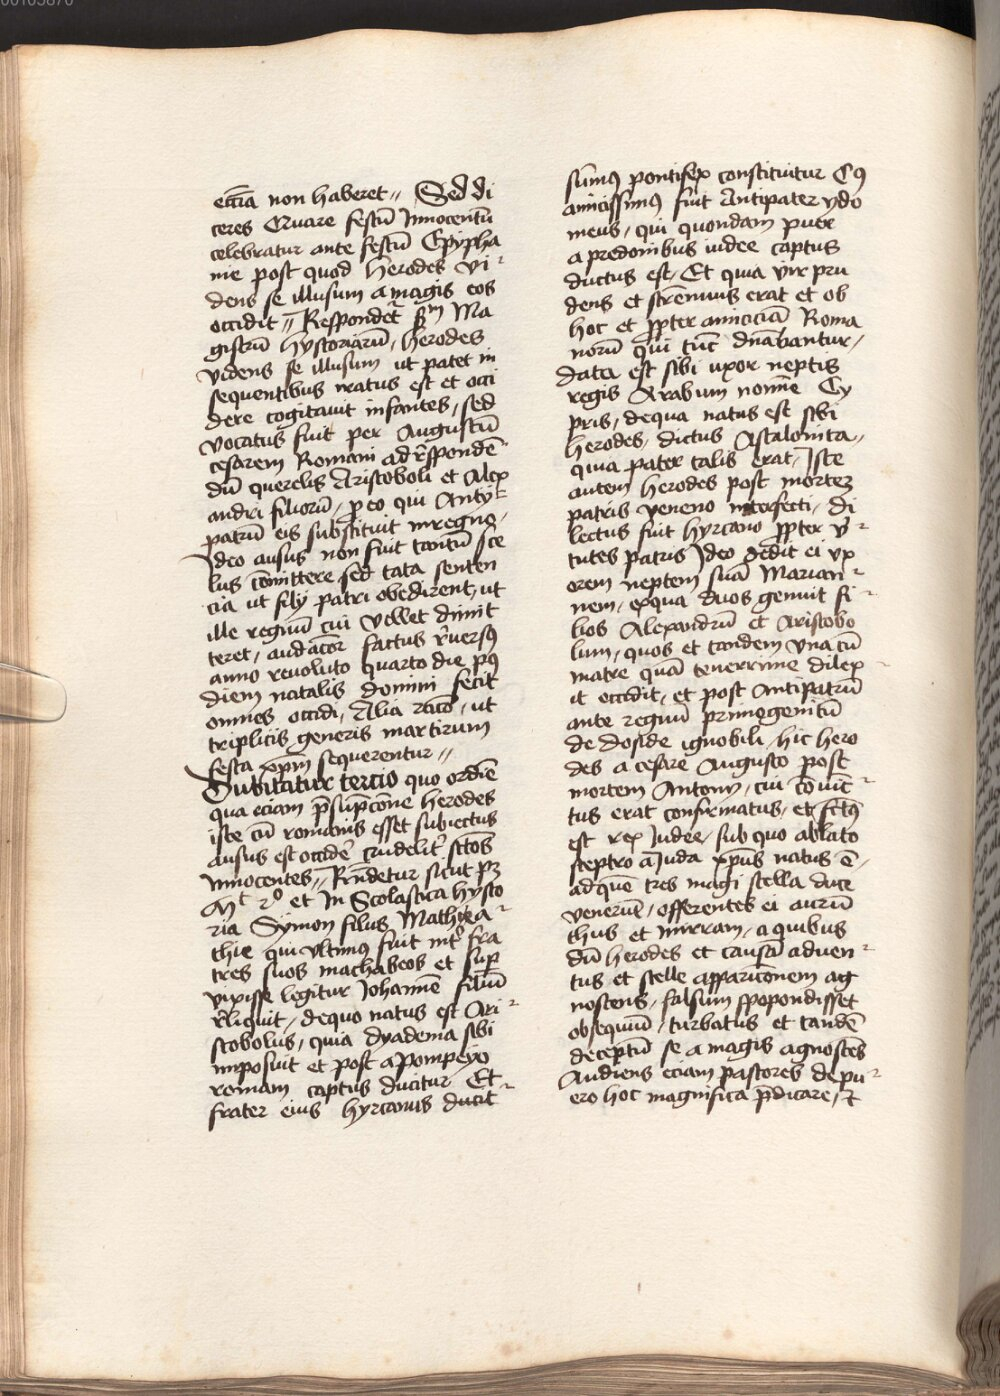 eccīa non haberet〃 Sed di
ceres Quare festū Innocentū
celebratur ante festū Epypha
nie post quod Herodes vi
dens se illusum a magis eos
occidit〃 Respondet̄ sm̄ Ma
gistrū hystoriarū, herodes
videns se illusum ut patet in
sequentibus iratus est et occi
dere cogitauit infantes, sed
vocatus fuit per Augustū
cesarem Romam ad r̄spondē
dū querelis Aristoboli et Alex
andri filiorū, p̱ eo qui Anty
patrū eis substituit in regno,
Ideo ausus non fuit tantū sce
lus cōmittere sed tata senten
cia ut filij patri obedirent, ut
ille regnū cui vellet dimit
teret, audacior factus r̄uersꝰ
anno reuoluto quarto die pꝰ
diem natalis domini fecit
omnes occidi, Alia racō, ut
triplicis generis martirum
festa xpm̄ sequerentur〃
Dubitatur tercio quo ordīe
qua eciam p̄supcōne herodes
iste cū romanis esset subiectus
ausus est occidē crudelit̄ sctōs
Innocentes〃 Rn̄detur sicut pꝫ
Mt 2º et In Scolastica hysto
ria Symon filius Mathea
thie qui vltimꝰ fuit int̄ fra
tres suos machabeos et sup̄
vixisse legitur Johannē filiū
r̄liquit, de quo natus est Ari
stobolus, quia dyadema sibi
imposuit et post a Pompeyo
romam captus ducitur Et
frater eius hyrcanus ducit
sumꝰ pontifex constituitur Cꝰ
amicissimꝰ fuit Antipater ydo
meus, qui quondam puer
a predonibus iudee captus
ductus est, Et quia vir pru
dens et strēnuus erat et ob
hoc et p̱pter amiciciā Roma
norū qui tūc dn̄abantur,
data est sibi vxor neptis
regis Arabum nomīe Cy
pris, de qua natus est sibi
herodes, dictus Ascalonita,
quia pater talis erat, Iste
autem herodes post mortem
patris veneno interfecti, di
lectus fuit hyrcano p̱pter v̄
tutes patris Ideo dedit ei vx
orem neptem suā Marian
nem, ex qua duos genuit fi
lios Alexandrū et Aristobo
lum, quos et tandem vna cū
matre quā tenerrime dilex
it occidit, et post Antipatrū
ante regnū primogenitū
de doside ignobili, hic hero
des a cesare Augusto post
mortem Antony, cui cōiūc
tus erat confirmatus, et fctꝰ
est rex Iudee, sub quo ablato
sceptro a Juda xpūs natus ē,
ad quē tres magi stella duce
venerūt, offerentes ei aurū
thus et mirram, a quibus
dū herodes et causā aduen
tus et stelle appariconem ag
noscens, falsum spopondisset
obsequiū, turbatus et tandē
deceptū se a magis agnoscēs
Audiens eciam pastores de pu
ero hoc magnifica p̄dicare, et